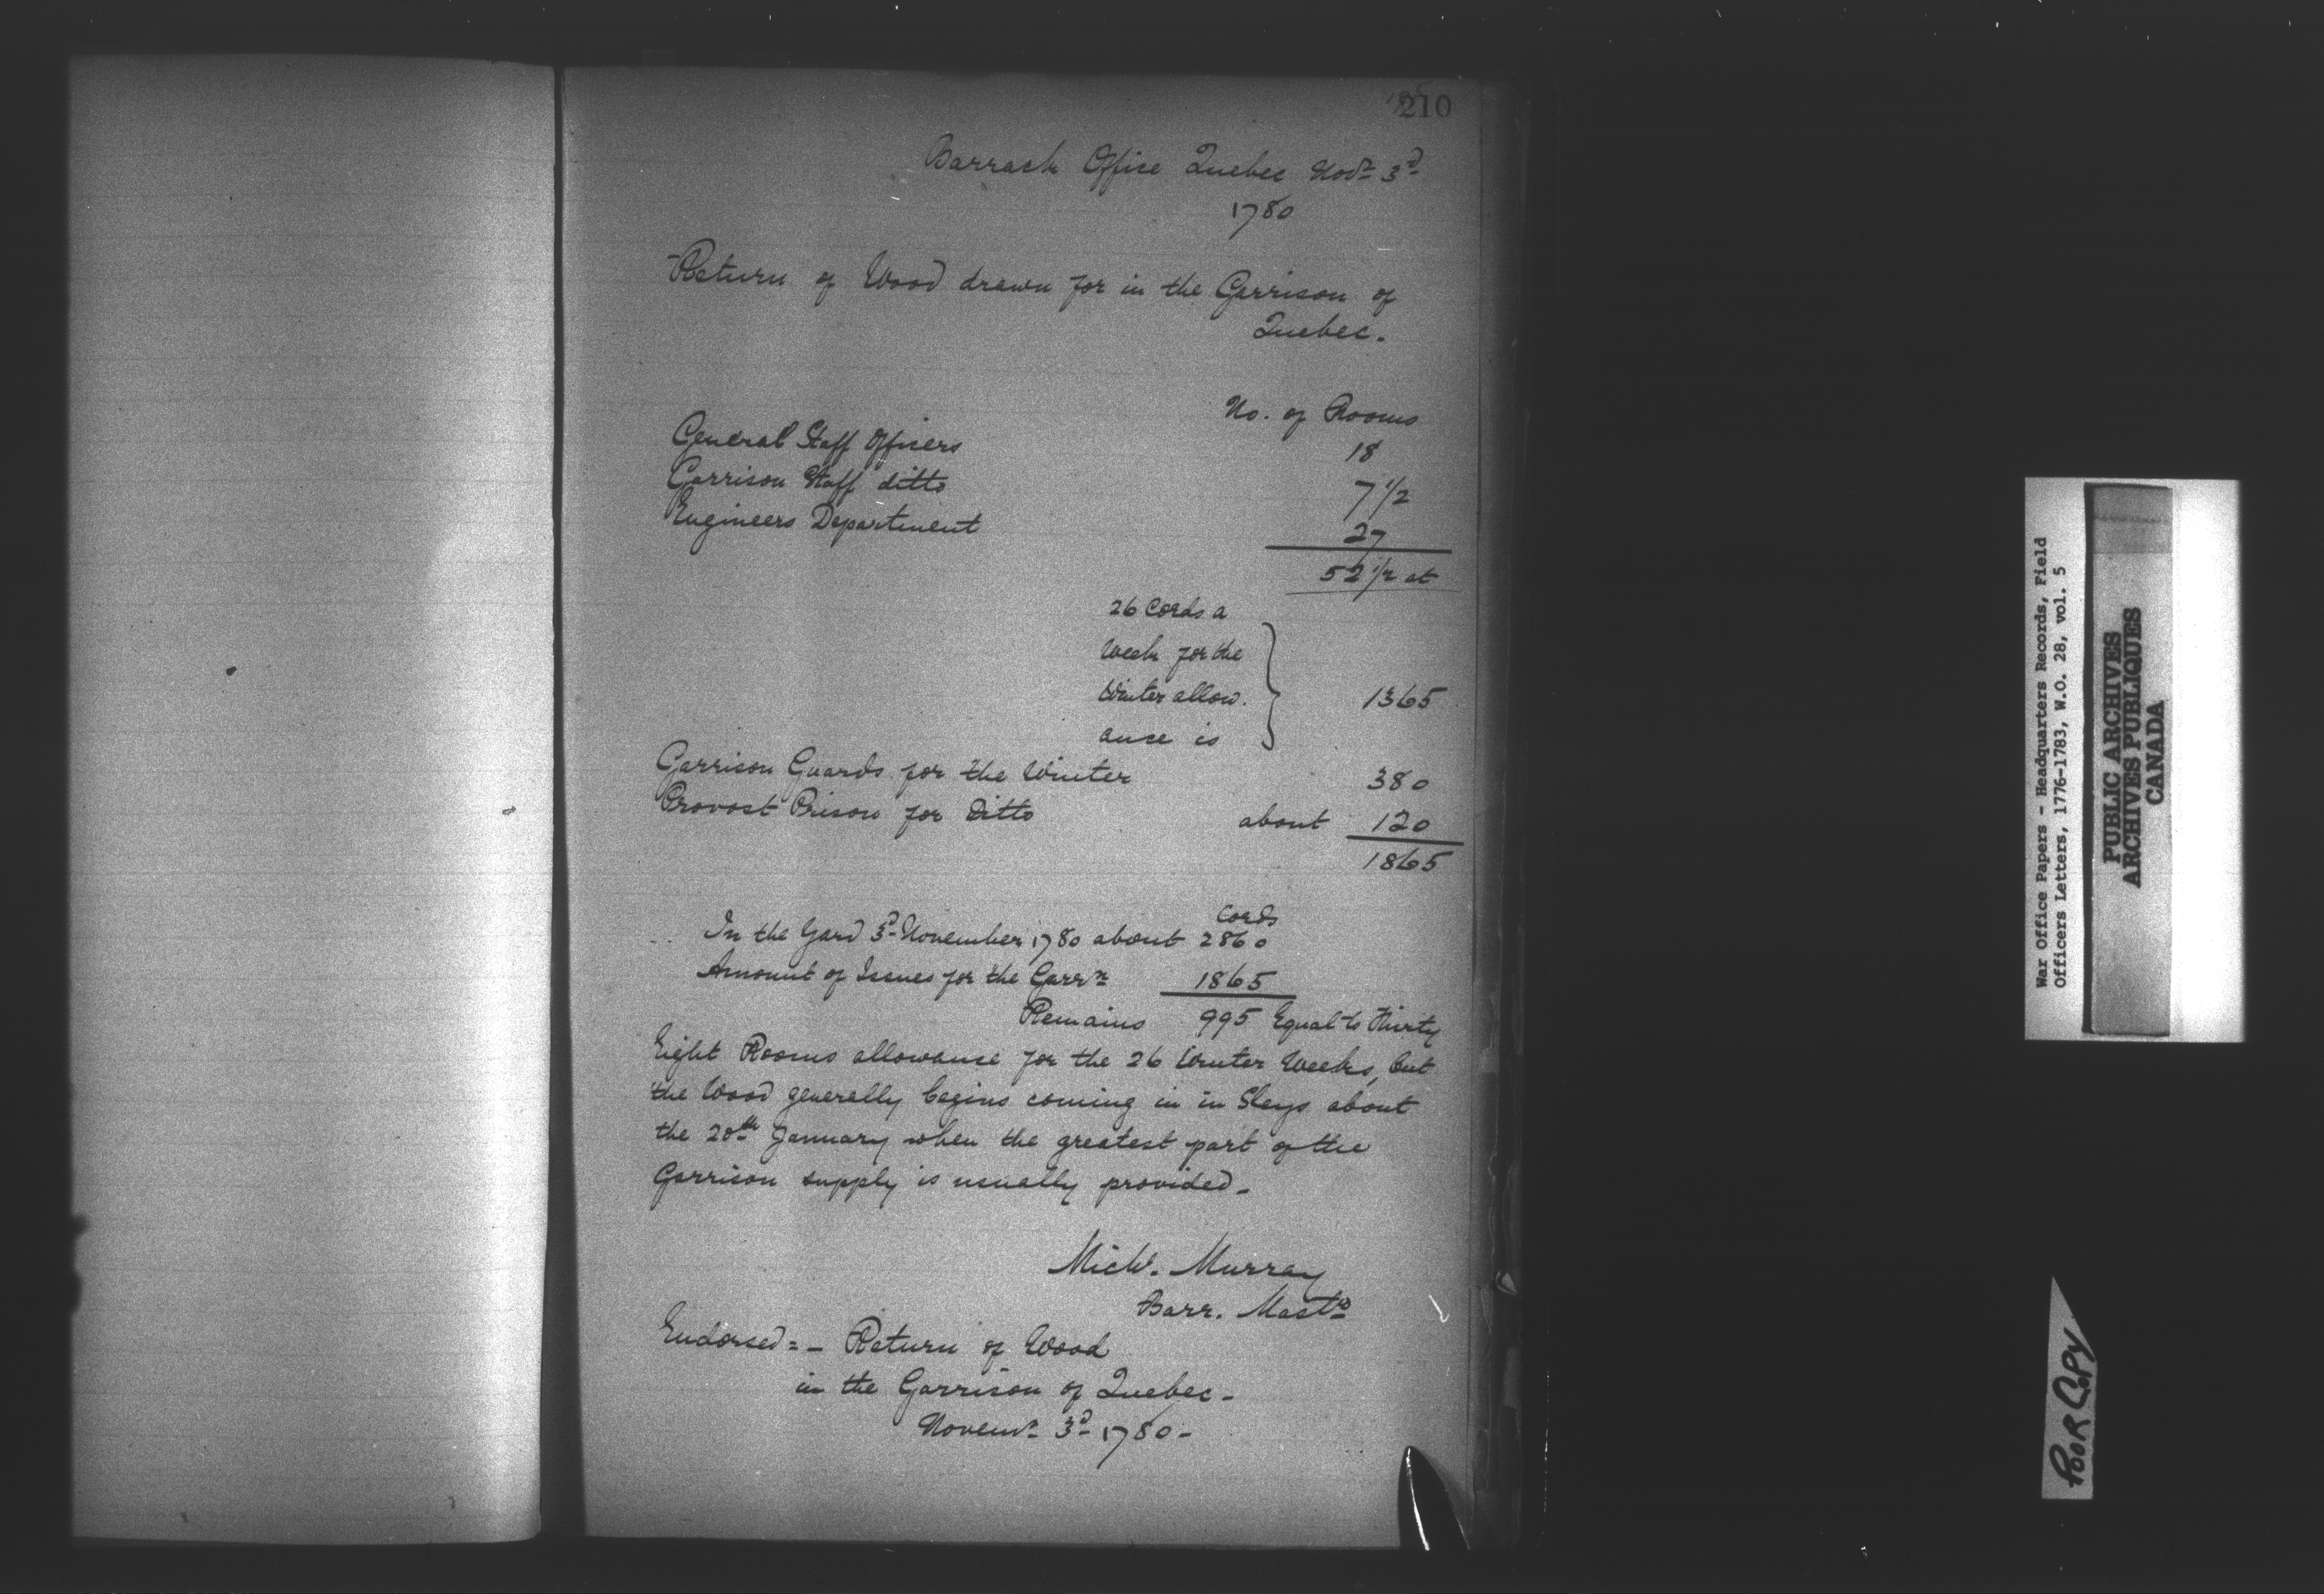 210
Barrack Office Quebec Novr 3d
1780
Return of Wood drawn for in the Garrison of
Quebec.
No. of Rooms
General Staff Officers 18
Garrison Staff ditto 7 1/2
Engineers Department 27
52 1/2 at
26 Cords a
Week for the
Winter allow.
ance is 1365
Garrison Guards for the Winter 380
Provost Prison for Ditto about 120
1865
Cords
In the Yard 3d November 1780 about 2860
Amount of Issues for the Garrn 1865
Remains 995 Equal to Thirty
Eight Rooms allowance for the 26 Winter Weeks, but
the Wood generally begins coming in in Sleys about
the 20th January when the greatest part of the
Garrison supply is usually provided -
Michl. Murray
Barr. Mastr
Endorsed = - Return of Wood
in the Garrison of Quebec -
Novemr 3d 1780 -
War Office Papers - Headquarters Records, Field
Officers Letters, 1776-1783, W.O. 28, vol. 5
PUBLIC ARCHIVES
ARCHIVES PUBLIQUES
CANADA
POOR COPY